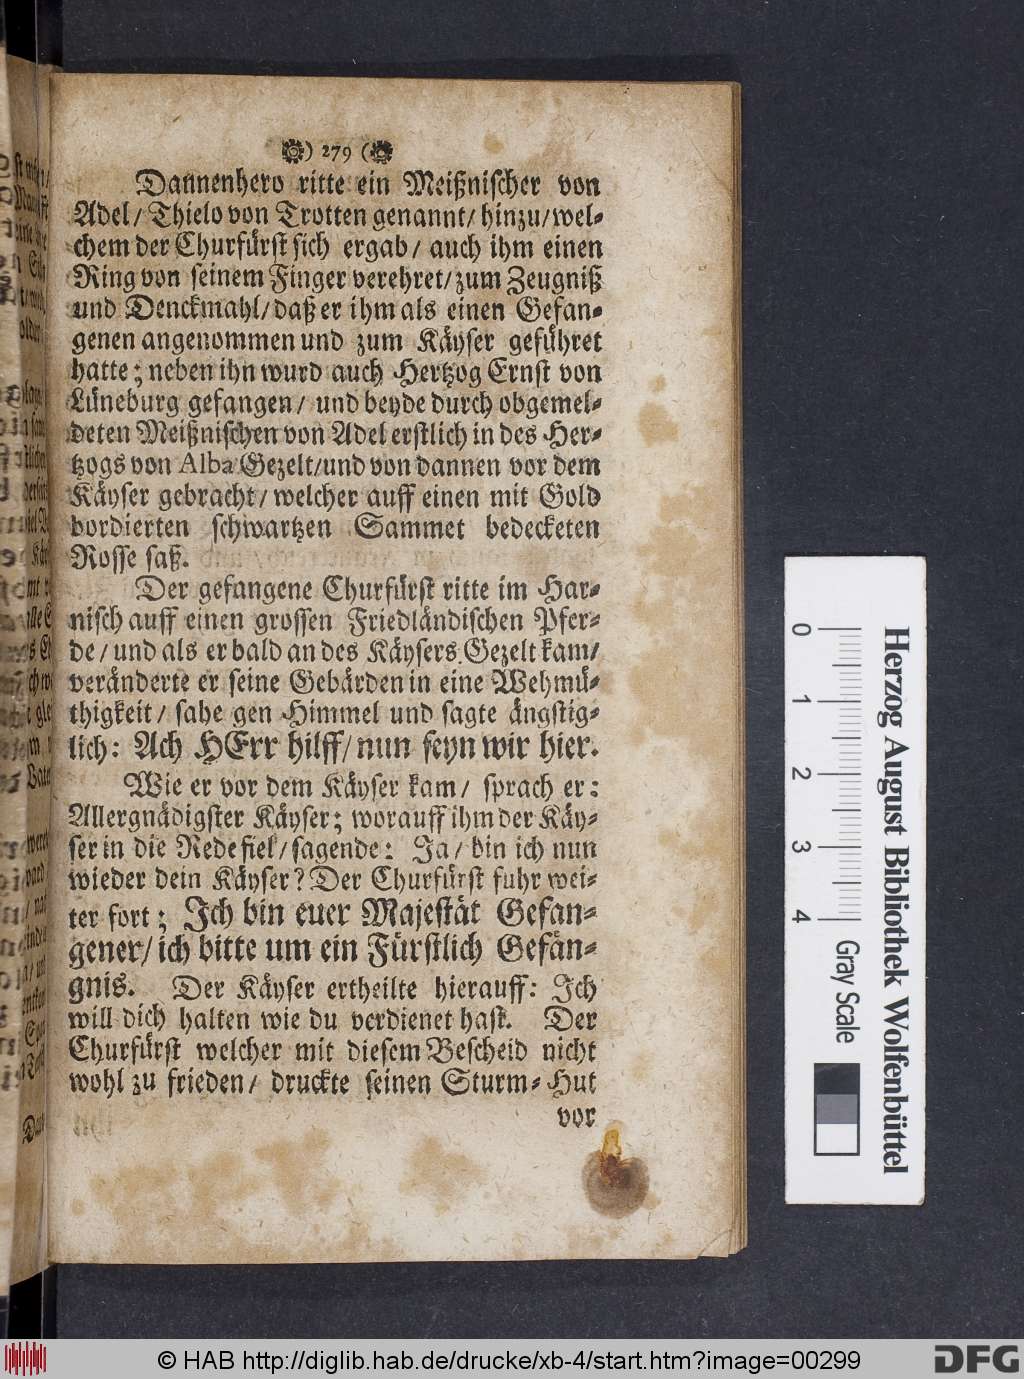 ) 279 (
Dannenhero ritte ein Meißnischer von
Adel/ Thielo von Trotten genannt/ hinzu/ wel-
chem der Churfürst sich ergab/ auch ihm einen
Ring von seinem Finger verehret/ zum Zeugniß
und Denckmahl/ daß er ihm als einen Gefan-
genen angenommen und zum Käyser geführet
hatte; neben ihn wurd auch Hertzog Ernst von
Lüneburg gefangen/ und beyde durch obgemel-
deten Meißnischen von Adel erstlich in des Her-
tzogs von Alba Gezelt/ und von dannen vor dem
Käyser gebracht/ welcher auff einen mit Gold
bordierten schwartzen Sammet bedecketen
Rosse saß.
Der gefangene Churfürst ritte im Har-
nisch auff einen grossen Friedländischen Pfer-
de/ und als er bald an des Käysers Gezelt kam/
veränderte er seine Gebärden in eine Wehmü-
thigkeit/ sahe gen Himmel und sagte ängstig-
lich: Ach HErr hilff/ nun seyn wir hier.
Wie er vor dem Käyser kam/ sprach er:
Allergnädigster Käyser; worauff ihm der Käy-
ser in die Rede fiel/ sagende: Ja/ bin ich nun
wieder dein Käyser? Der Churfürst fuhr wei-
ter fort; Ich bin euer Majestät Gefan-
gener/ ich bitte um ein Fürstlich Gefän-
gnis. Der Käyser ertheilte hierauff: Ich
will dich halten wie du verdienet hast. Der
Churfürst welcher mit diesem Bescheid nicht
wohl zu frieden/ druckte seinen Sturm-Hut
vor
0 1 2 3 4
Gray Scale
Herzog August Bibliothek Wolfenbüttel
© HAB http://diglib.hab.de/drucke/xb-4/start.htm?image=00299
DFG